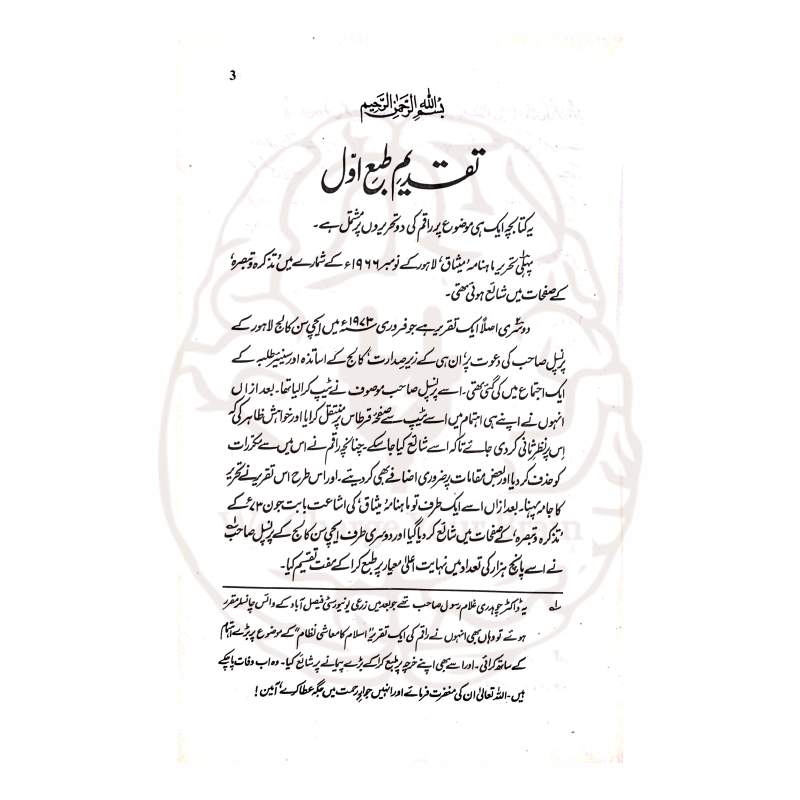 3
بِسْمِ اللّٰہِ الرَّحْمٰنِ الرَّحِیْمِ
تقدیم طبع اوّل
یہ کتابچہ ایک ہی موضوع پر راقم کی دو تحریروں پر مشتمل ہے۔
پہلی تحریر ماہنامہ ’میثاق‘ لاہور کے نومبر ۱۹۶۶ء کے شمارے میں ’تذکرہ و تبصرہ‘
کے صفحات میں شائع ہوئی تھی۔
دوسری اصلاً ایک تقریر ہے جو فروری ۱۹۷۳ء میں ایچی سن کالج لاہور کے
پرنسپل صاحب کی دعوت پر‘ ان ہی کے زیر صدارت‘ کالج کے اساتذہ اور سینیئر طلبہ کے
ایک اجتماع میں کی گئی تھی۔ اسے پرنسپل صاحب موصوف نے ٹیپ کرا لیا تھا۔ بعد ازاں
انہوں نے اپنے ہی اہتمام میں اسے ٹیپ سے صفحۂ قرطاس پر منتقل کرایا اور خواہش ظاہر کی کہ
اس پر نظر ثانی کر دی جائے تاکہ اسے شائع کیا جا سکے۔ چنانچہ راقم نے اس میں سے مکررات
کو حذف کر دیا اور بعض مقامات پر ضروری اضافے بھی کر دیئے۔ اور اس طرح اس تقریر نے تحریر
کا جامہ پہنا۔ بعد ازاں اسے ایک طرف تو ماہنامہ ’میثاق‘ کی اشاعت بابت جون ۷۳ء کے
’تذکرہ و تبصرہ‘ کے صفحات میں شائع کر دیا گیا اور دوسری طرف ایچی سن کالج کے پرنسپل صاحب ؂۱
نے اسے پانچ ہزار کی تعداد میں نہایت اعلیٰ معیار پر طبع کرا کے مفت تقسیم کیا۔
؂۱ یہ ڈاکٹر چوہدری غلام رسول صاحب تھے جو بعد میں زرعی یونیورسٹی فیصل آباد کے وائس چانسلر مقرر
ہوئے تو وہاں بھی انہوں نے راقم کی ایک تقریر ”اسلام کا معاشی نظام“ کے موضوع پر بڑے اہتمام
کے ساتھ کرائی۔ اور اسے بھی اپنے خرچ پر طبع کرا کے بڑے پیمانے پر شائع کیا۔ وہ اب وفات پا چکے
ہیں۔ اللہ تعالیٰ ان کی مغفرت فرمائے اور انہیں جوارِ رحمت میں جگہ عطا کرے‘ آمین!